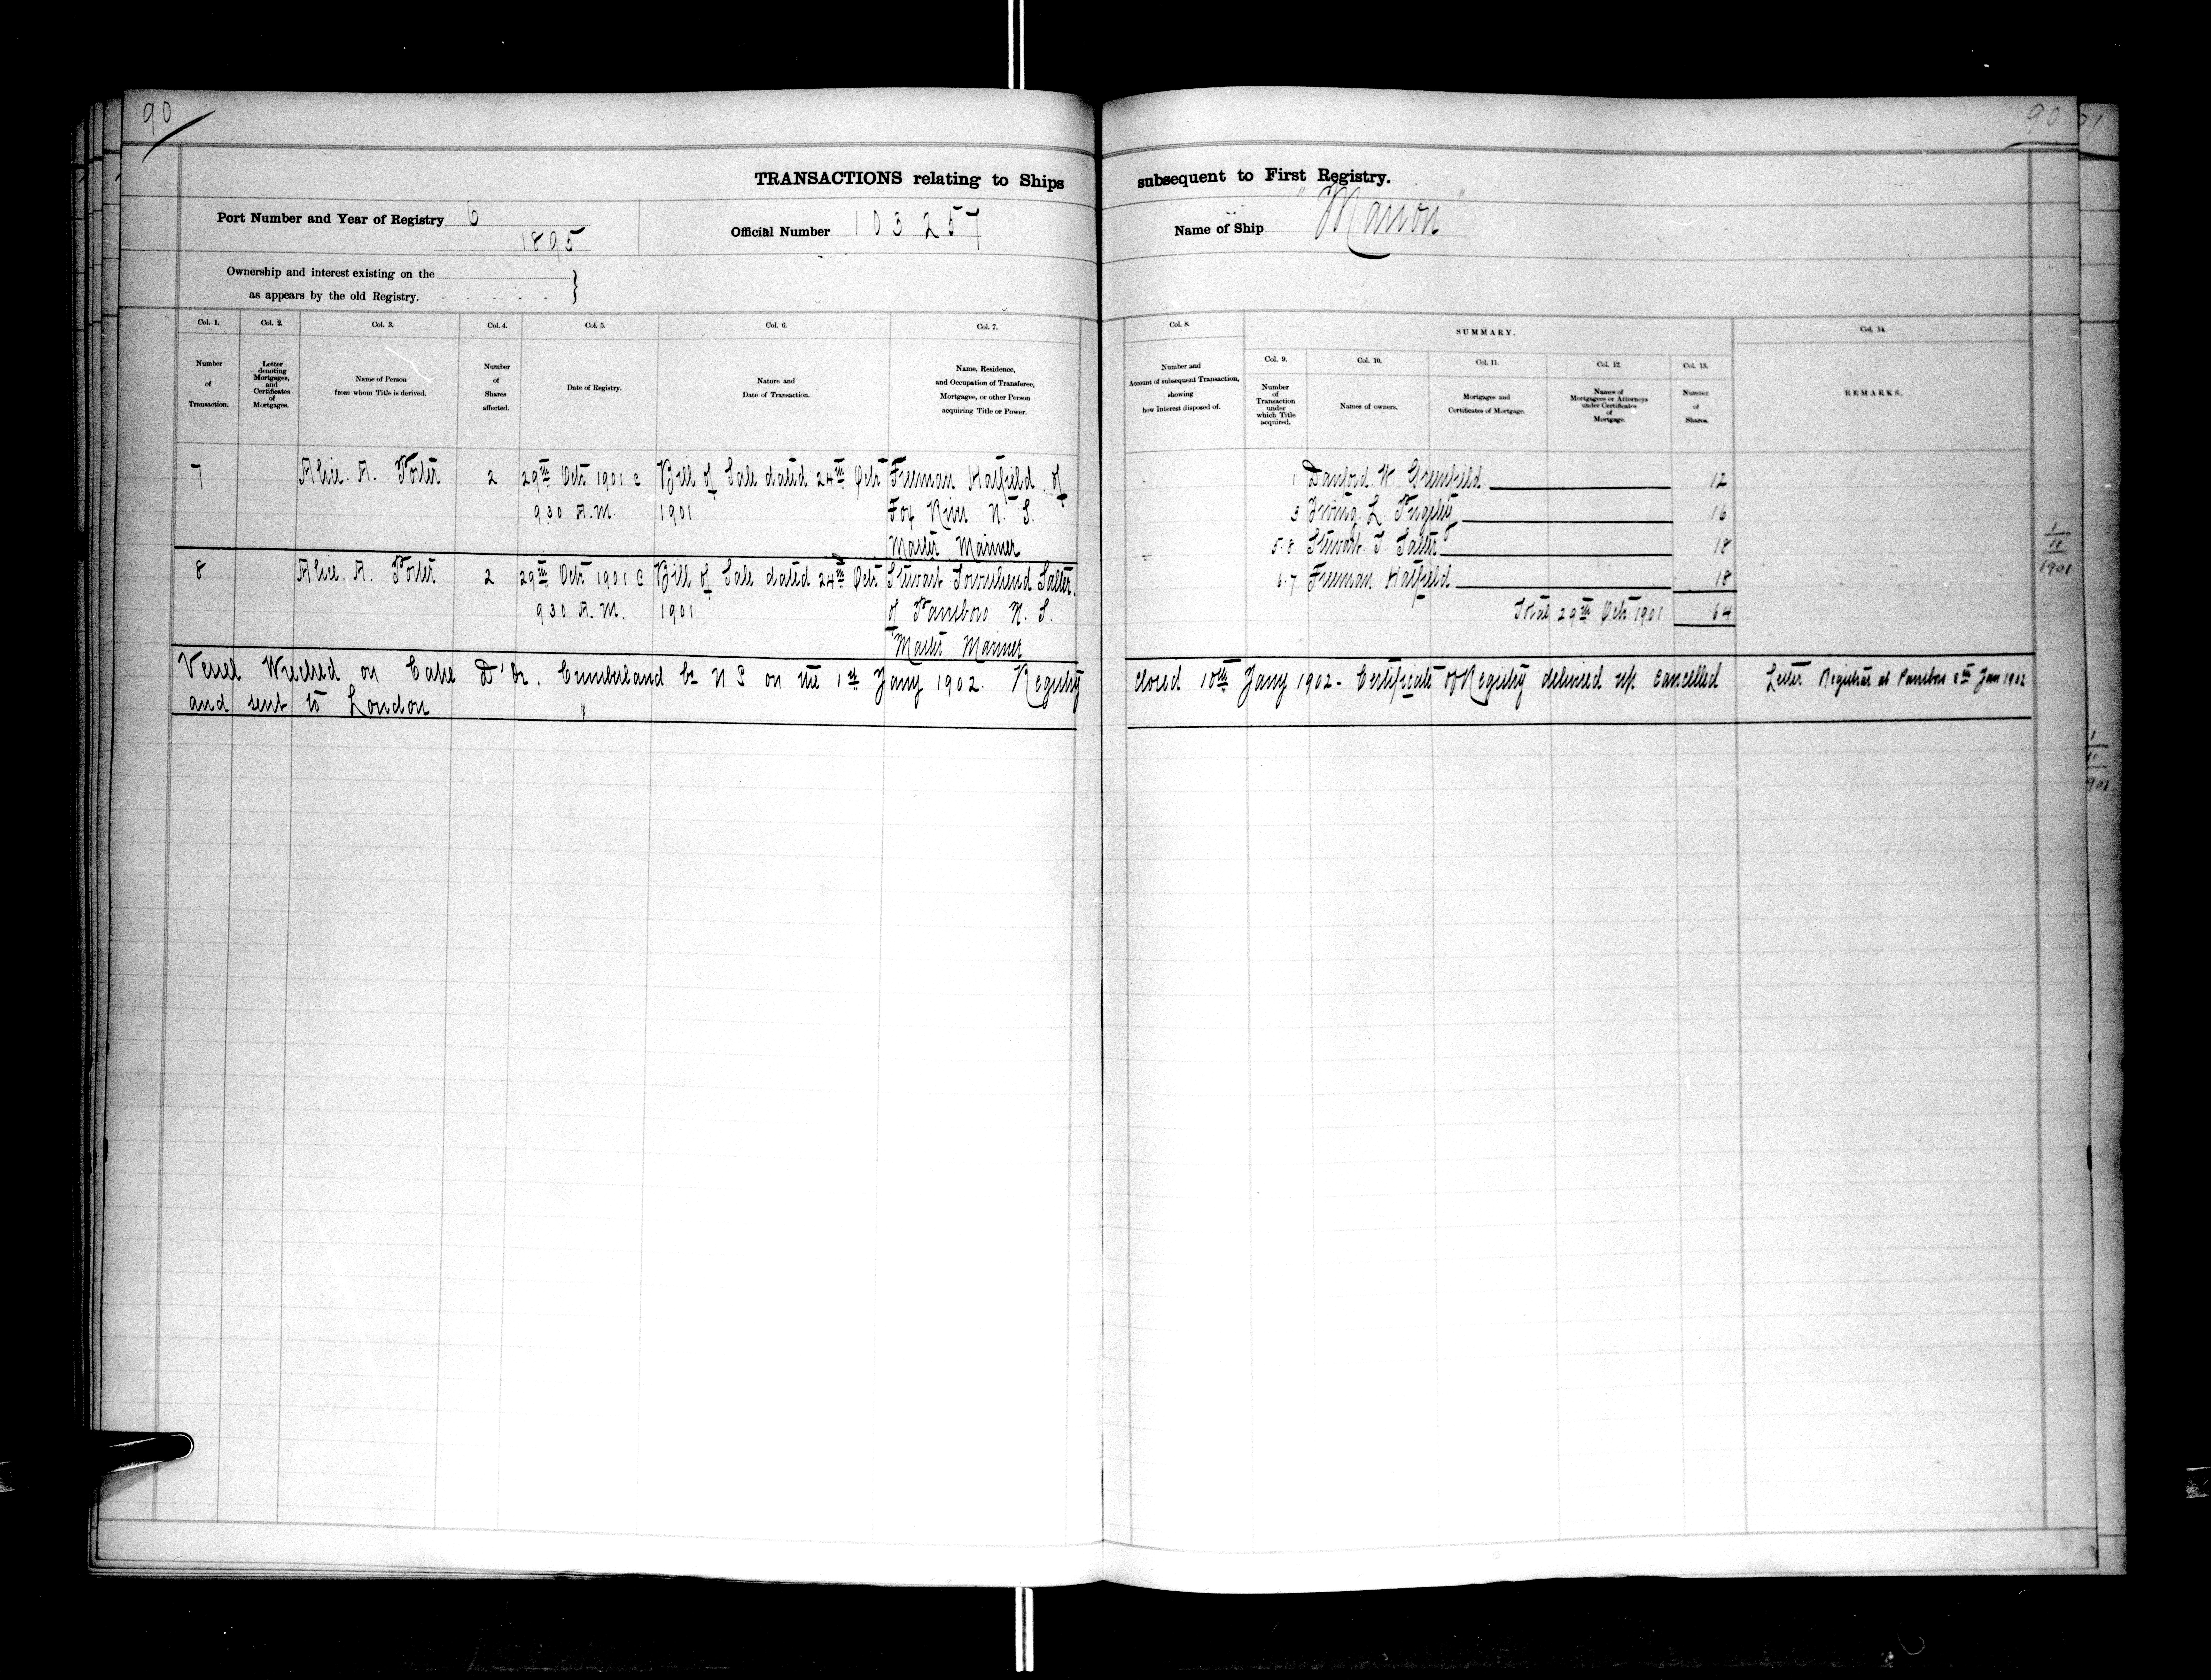 90
90
91
TRANSACTIONS relating to Ships subsequent to First Registry.
Port Number and Year of Registry 6
1895
Official Number 103257
Name of Ship "Marion"
Ownership and interest existing on the
as appears by the old Registry.
Col. 1.
Number
of
Transaction.
Col. 2.
Letter
denoting
Mortgages,
and
Certificates
of
Mortgages.
Col. 3.
Name of Person
from whom Title is derived.
Col. 4.
Number
of
Shares
affected.
Col. 5.
Date of Registry.
Col. 6.
Nature and
Date of Transaction.
Col. 7.
Name, Residence,
and Occupation of Transferee,
Mortgagee, or other Person
acquiring Title or Power.
Col. 8.
Number and
Account of subsequent Transaction,
showing
how Interest disposed of.
SUMMARY.
Col. 9.
Number
of
Transaction
under
which Title
acquired.
Col. 10.
Names of owners.
Col. 11.
Mortgages and
Certificates of Mortgage.
Col. 12.
Names of
Mortgagees or Attorneys
under Certificates
of
Mortgage.
Col. 13.
Number
of
Shares.
Col. 14.
REMARKS.
7 Alice. A. Porter 2 29th Octr 1901 @ Bill of Sale dated 24th Octr Freeman Hatfield of
9 30 A.M. 1901 Fox River N. S.
Master Mariner
8 Alice. A. Porter 2 29th Octr 1901 @ Bill of Sale dated 24th Octr Stewart Townshend Salter
9 30 A.M. 1901 of Parrsboro N. S.
Master Mariner
1 Danford W Greenfield 12
3 Irving L 16
5.8 Stewart T. Salter 18
6.7 Freeman Hatfield 18
Total 29th Octr 1901 64
1
11
1901
Vessel Wrecked on Cape D'Or, Cumberland Co N S on the 1st Jany 1902. Registry closed 10th Jany 1902 - Certificate of Registry delivered up cancelled
and sent to London
Letter Registrar at Parrsboro 8th Jan 1902
1
11
901